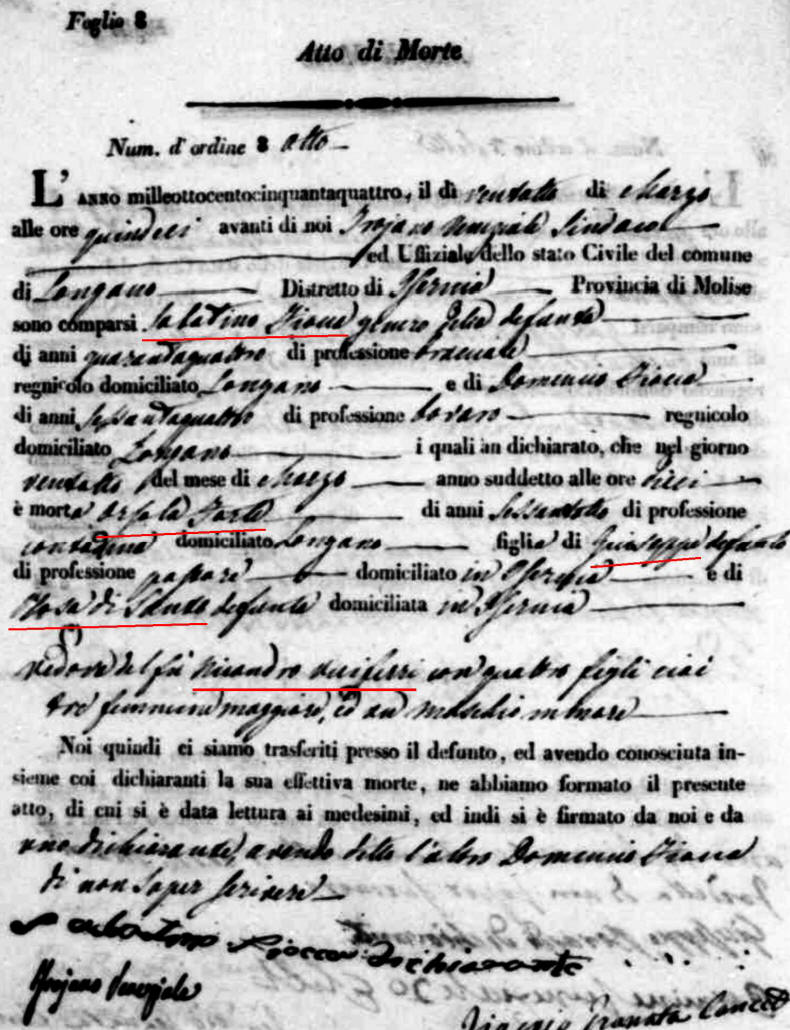 Foglio 8
Atto di Morte
Num. d'ordine 8 otto
L'anno milleottocentocinquantaquattro, il dì ventotto di Marzo
alle ore quindeci avanti di noi Trojano Veneziale Sindaco
ed Uffiziale dello stato Civile del comune
di Longano Distretto di Isernia Provincia di Molise
sono comparsi Sabatino Piocca genero della defunta
di anni quarantaquattro di professione bracciale
regnicolo domiciliato Longano e di Domenico Piocca
di anni sessantaquattro di professione bovaro regnicolo
domiciliato Longano i quali an dichiarato, che nel giorno
ventotto del mese di Marzo anno suddetto alle ore dieci
è morta Orsola Forte di anni sessantotto di professione
contadina domiciliato Longano figlia di Giuseppe defunto
di professione pastore domiciliato in Isernia e di
Rosa di defunta domiciliata in Isernia
vedova del fù Nicandro con quattro figli cioè
tre femmine maggiore, ed un maschio minore
Noi quindi ci siamo trasferiti presso il defunto, ed avendo conosciuta in-
sieme coi dichiaranti la sua effettiva morte, ne abbiamo formato il presente
atto, di cui si è data lettura ai medesimi, ed indi si è firmato da noi e da
uno dichiarante, avendo detto l'altro Domenico Piocca
di non saper scrivere
Sabatino Piocca dichiarante
Trojano Veneziale
Granata Cancel